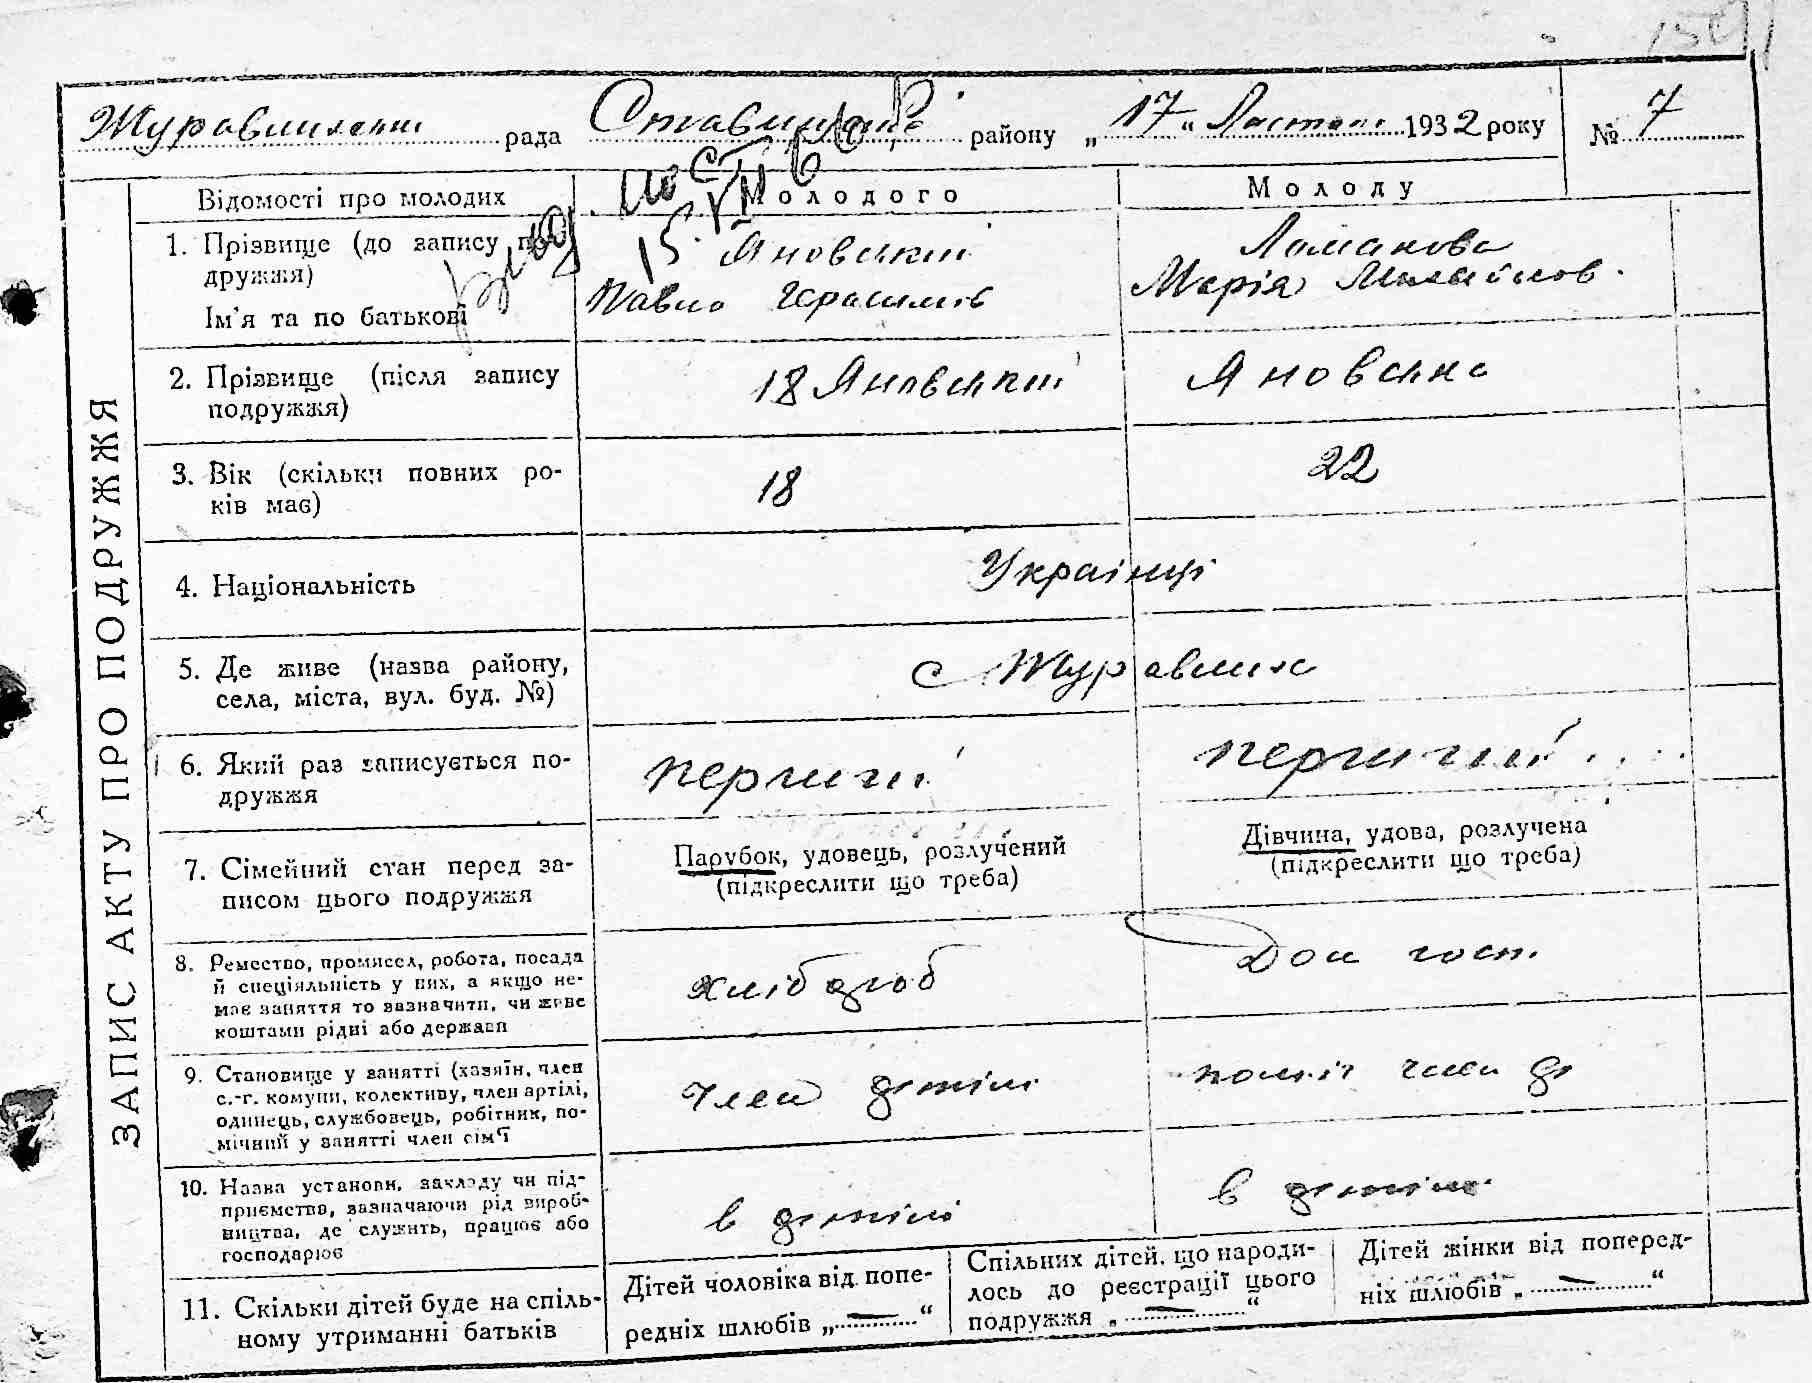 рада району „17“ 1932 року № 7
ЗАПИС АКТУ ПРО ПОДРУЖЖЯ
Відомості про молодих
Молодого
Молоду
1. Прізвище (до запису по-
дружжя)
Ім'я та по батькові
Яновський
Павло Герасимів
Ломанова
Марія Михайлов.
2. Прізвище (після запису
подружжя)
18 Яновський
Яновська
3. Вік (скільки повних ро-
ків має)
18
22
4. Національність
Українці
5. Де живе (назва району,
села, міста, вул. буд. №)
с Журавлиха
6. Який раз записується по-
дружжя
перший
перший
7. Сімейний стан перед за-
писом цього подружжя
Парубок, удовець, розлучений
(підкреслити що треба)
Дівчина, удова, розлучена
(підкреслити що треба)
8. Ремество, промисел, робота, посада
й спеціяльність у них, а якщо не-
має заняття то зазначити, чи живе
коштами рідні або держави
хлібороб
Дом госп.
9. Становище у занятті (хазяїн, член
с.-г. комуни, колективу, член артілі,
одинець, службовець, робітник, по-
мічний у занятті член сім'ї
член артілі
член
10. Назва установи, закладу чи під-
приємства, зазначаючи рід вироб-
ництва, де служить, працює або
господарює
в артілі
в артілі
11. Скільки дітей буде на спіль-
ному утриманні батьків
Дітей чоловіка від попе-
редніх шлюбів „—“
Спільних дітей, що народи-
лось до реєстрації цього
подружжя „—“
Дітей жінки від поперед-
ніх шлюбів „—“